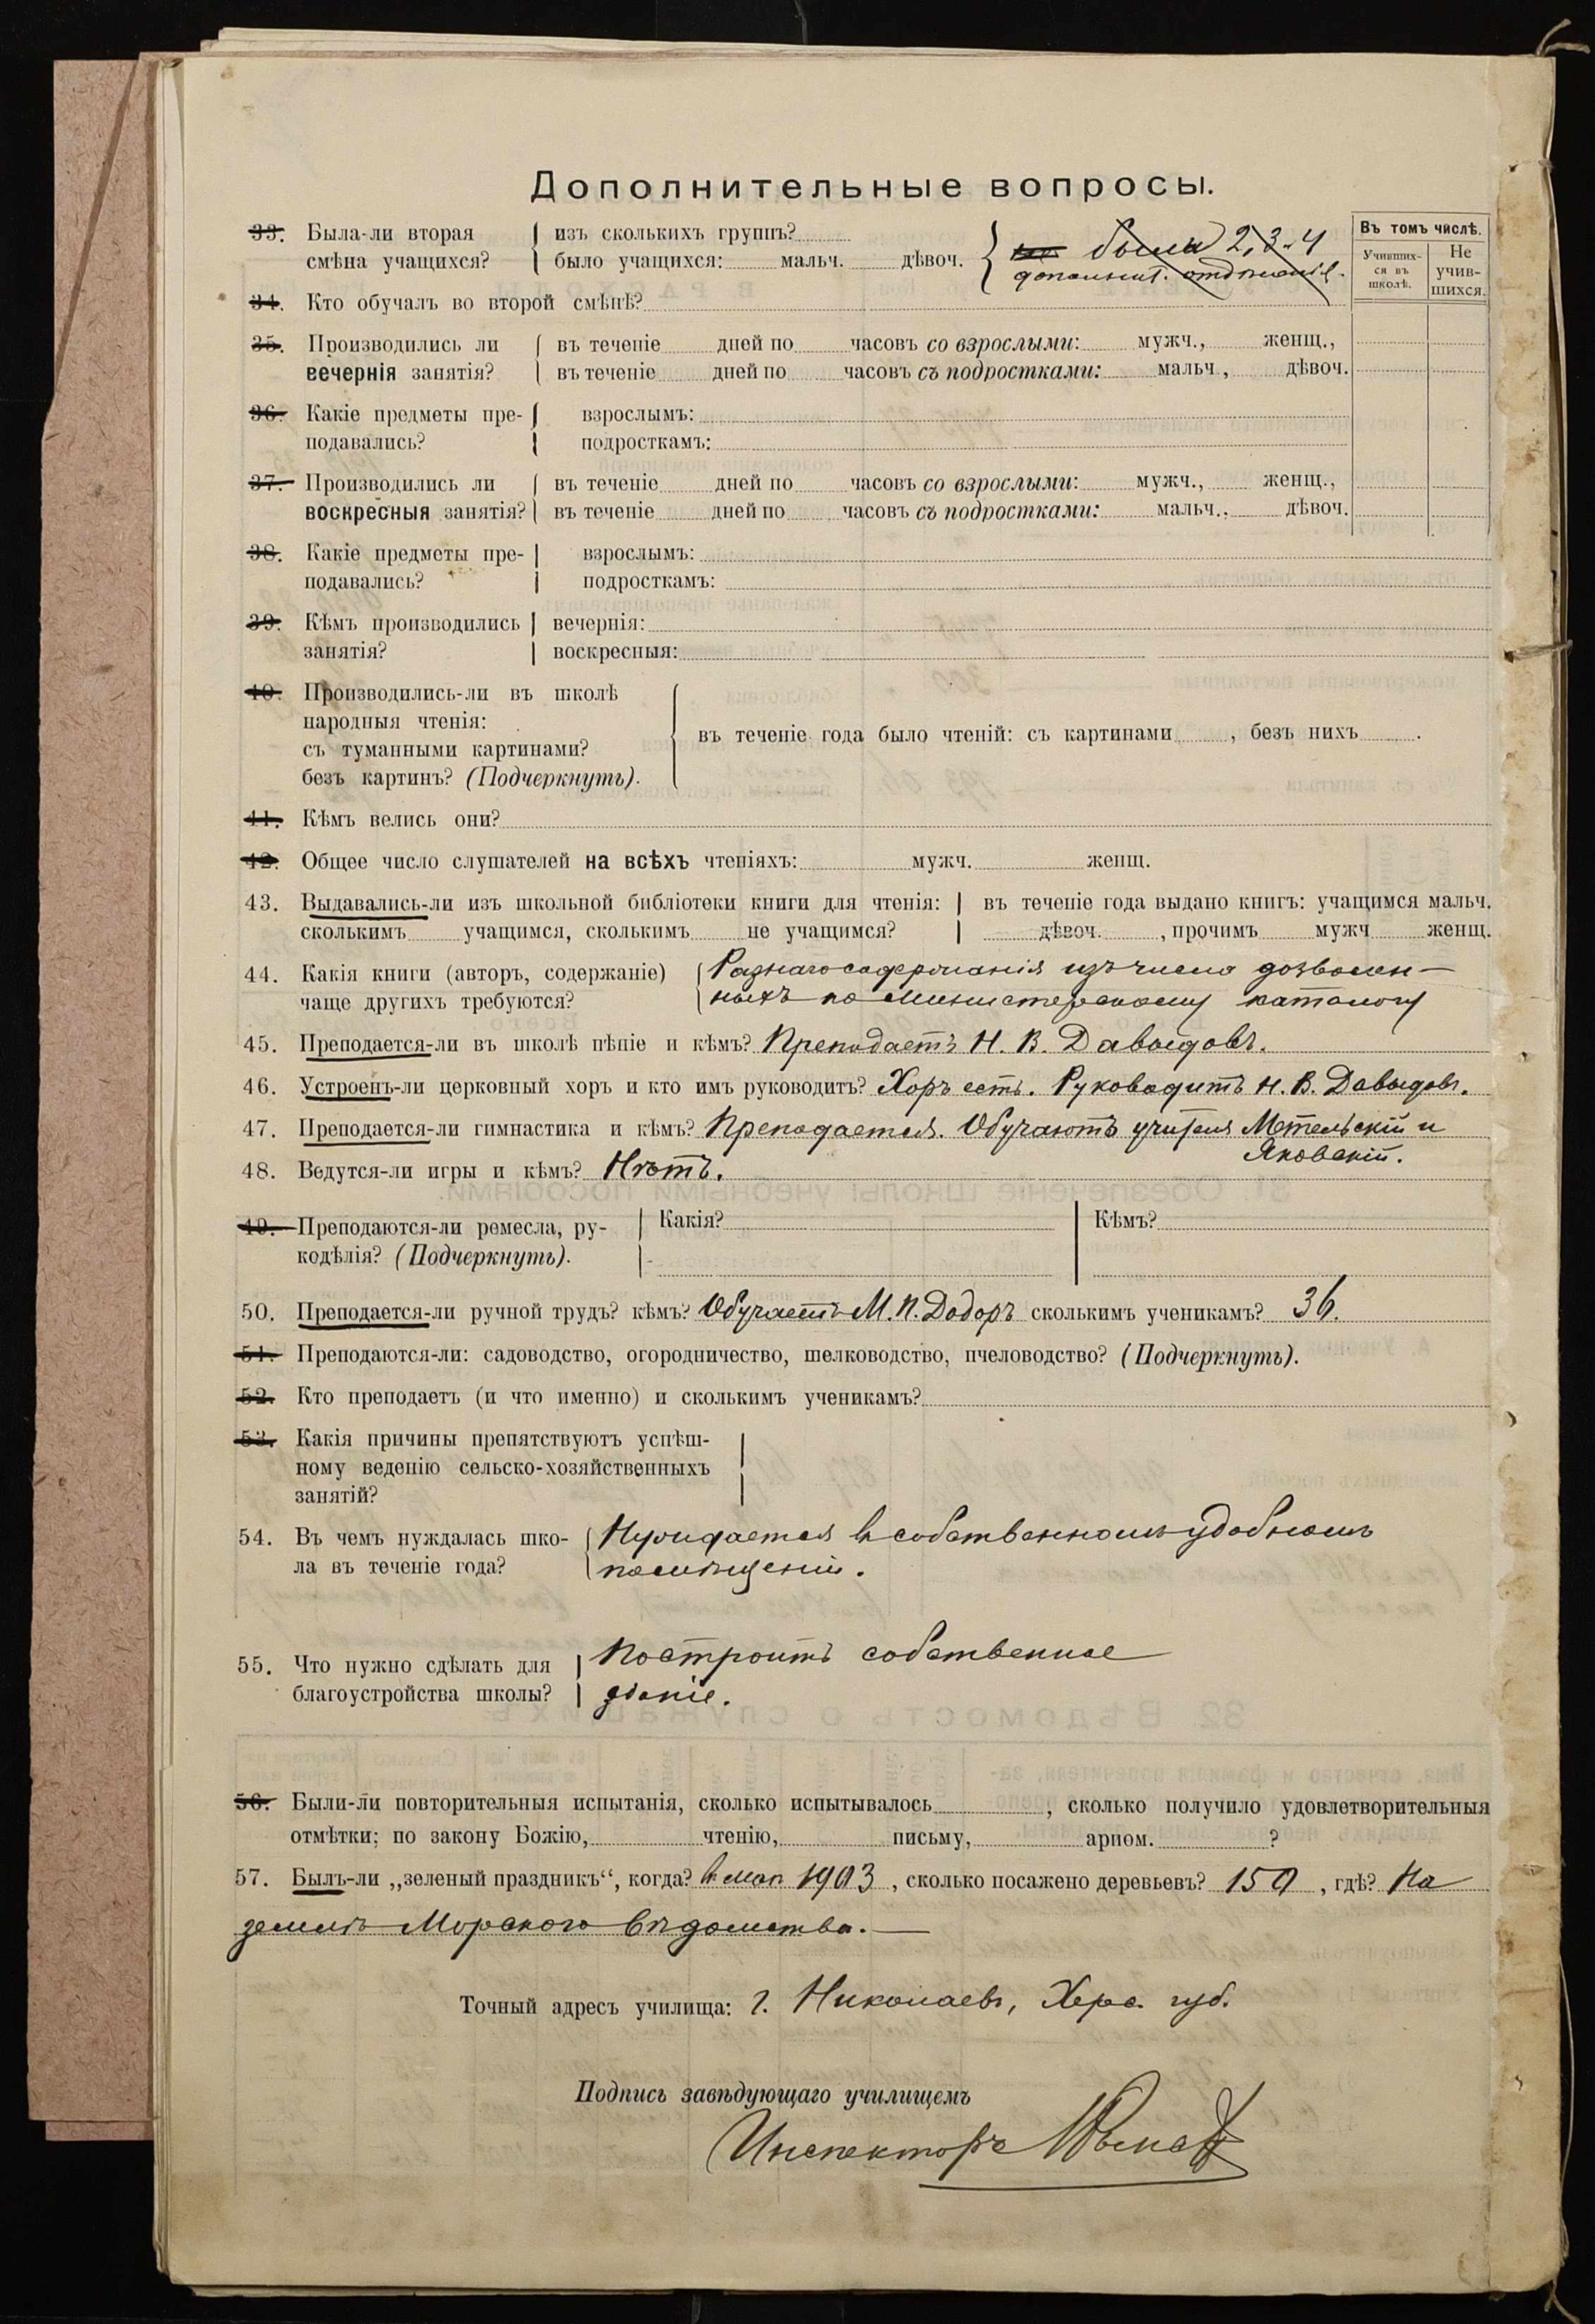 Дополнительные вопросы.
33. Была-ли вторая смѣна учащихся? изъ сколькихъ группъ?
было учащихся: мальч. дѣвоч. были 2, 3 и 4
дополнит. отдѣленія.
Въ томъ числѣ.
Учившихся въ школѣ. Не учившихся.
34. Кто обучалъ во второй смѣнѣ?
35. Производились ли въ теченіе дней по часовъ со взрослыми: мужч., женщ.,
вечернія занятія? въ теченіе дней по часовъ съ подростками: мальч., дѣвоч.
36. Какіе предметы пре- взрослымъ:
подавались? подросткамъ:
37. Производились ли въ теченіе дней по часовъ со взрослыми: мужч., женщ.,
воскресныя занятія? въ теченіе дней по часовъ съ подростками: мальч., дѣвоч.
38. Какіе предметы пре- взрослымъ:
подавались? подросткамъ:
39. Кѣмъ производились вечернія:
занятія? воскресныя:
40. Производились-ли въ школѣ
народныя чтенія:
съ туманными картинами? въ теченіе года было чтеній: съ картинами , безъ нихъ .
безъ картинъ? (Подчеркнуть).
41. Кѣмъ велись они?
42. Общее число слушателей на всѣхъ чтеніяхъ: мужч. женщ.
43. Выдавались-ли изъ школьной библіотеки книги для чтенія: въ теченіе года выдано книгъ: учащимся мальч.
сколькимъ учащимся, сколькимъ не учащимся? дѣвоч. , прочимъ мужч женщ.
44. Какія книги (авторъ, содержаніе) Разнаго содержанія изъ числа дозволен-
чаще другихъ требуются? ныхъ по Министерскому каталогу
45. Преподается-ли въ школѣ пѣніе и кѣмъ? Преподаетъ Н. В. Давыдовъ.
46. Устроенъ-ли церковный хоръ и кто имъ руководитъ? Хоръ есть. Руководитъ Н. В. Давыдовъ.
47. Преподается-ли гимнастика и кѣмъ? Преподается. Обучаютъ учителя Метельскій и
Яновскій.
48. Ведутся-ли игры и кѣмъ? Нѣтъ.
49. Преподаются-ли ремесла, ру- Какія? Кѣмъ?
кодѣлія? (Подчеркнуть).
50. Преподается-ли ручной трудъ? кѣмъ? Обучаетъ М. П. Додоръ сколькимъ ученикамъ? 36.
51. Преподаются-ли: садоводство, огородничество, шелководство, пчеловодство? (Подчеркнуть).
52. Кто преподаетъ (и что именно) и сколькимъ ученикамъ?
53. Какія причины препятствуютъ успѣш-
ному веденію сельско-хозяйственныхъ
занятій?
54. Въ чемъ нуждалась шко- Нуждается въ собственномъ удобномъ
ла въ теченіе года? помѣщеніи.
55. Что нужно сдѣлать для Построить собственное
благоустройства школы? зданіе.
56. Были-ли повторительныя испытанія, сколько испытывалось , сколько получило удовлетворительныя
отмѣтки; по закону Божію, чтенію, письму, ариѳм. ?
57. Былъ-ли „зеленый праздникъ“, когда? въ маѣ 1903, сколько посажено деревьевъ? 150, гдѣ? На
землѣ Морского вѣдомства.—
Точный адресъ училища: г. Николаевъ, Херс. губ.
Подпись завѣдующаго училищемъ
Инспекторъ